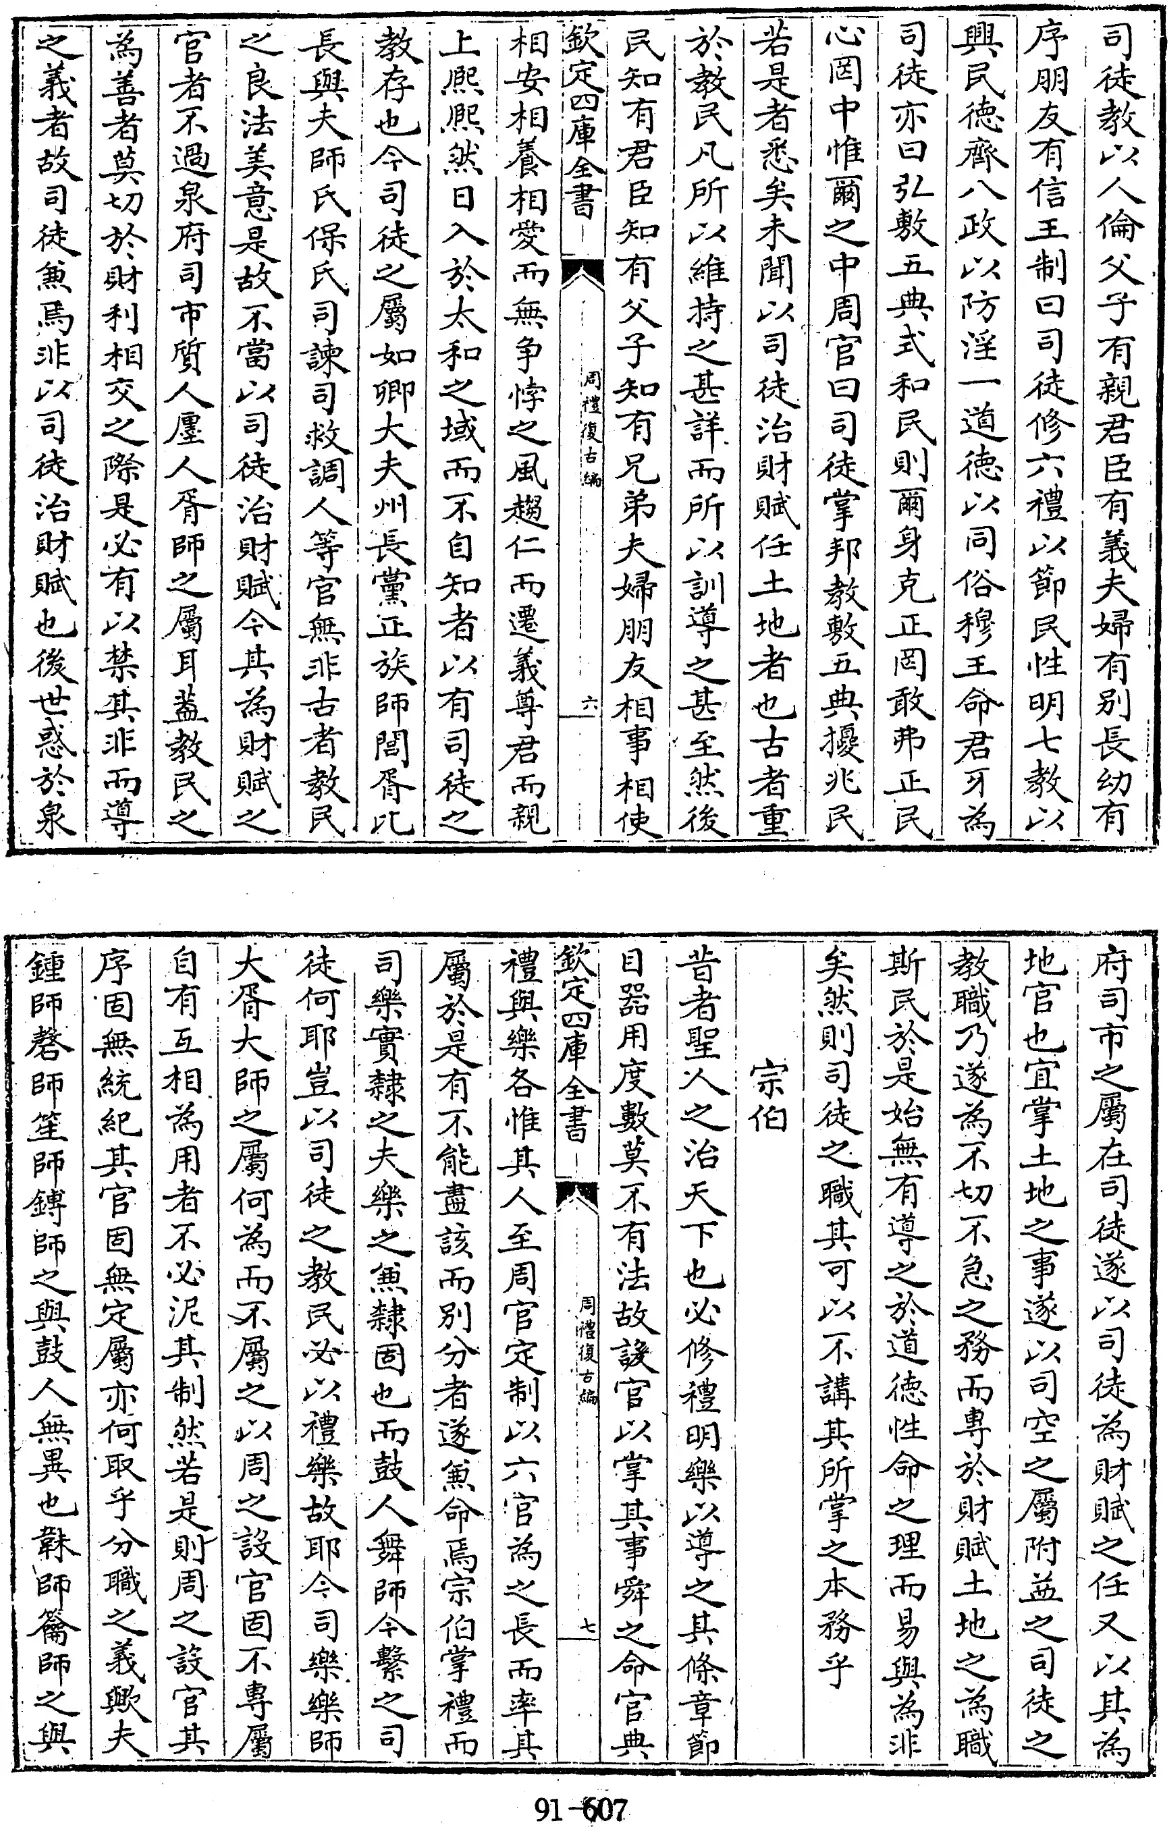 司徒教以人倫父子有親君臣有義夫婦有别長幼有
序朋友有信王制曰司徒修六禮以節民性明七教以
興民德齊八政以防淫一道德以同俗穆王命君牙為
司徒亦曰弘敷五典式和民則爾身克正罔敢弗正民
心罔中惟爾之中周官曰司徒掌邦教敷五典擾兆民
若是者悉矣未聞以司徒治財賦任土地者也古者重
於教民凡所以維持之甚詳而所以訓導之甚至然後
民知有君臣知有父子知有兄弟夫婦朋友相事相使
欽定四庫全書
周禮復古編
六
相安相養相愛而無争悖之風趨仁而遷義尊君而親
上熈熈然日入於太和之域而不自知者以有司徒之
教存也今司徒之屬如鄉大夫州長黨正族師閭胥比
長與夫師氏保氏司諫司救調人等官無非古者教民
之良法美意是故不當以司徒治財賦今其為財賦之
官者不過泉府司市質人廛人胥師之屬耳蓋教民之
為善者莫切於財利相交之際是必有以禁其非而導
之義者故司徒兼焉非以司徒治財賦也後世惑於泉
府司市之屬在司徒遂以司徒為財賦之任又以其為
地官也宜掌土地之事遂以司空之屬附益之司徒之
教職乃遂為不切不急之務而專於財賦土地之為職
斯民於是始無有導之於道德性命之理而易與為非
矣然則司徒之職其可以不講其所掌之本務乎
宗伯
昔者聖人之治天下也必修禮明樂以導之其條章節
目器用度數莫不有法故設官以掌其事舜之命官典
欽定四庫全書
周禮復古編
七
禮與樂各惟其人至周官定制以六官為之長而率其
屬於是有不能盡該而别分者遂兼命焉宗伯掌禮而
司樂實隸之夫樂之兼隸固也而鼓人舞師今繫之司
徒何耶豈以司徒之教民必以禮樂故耶今司樂樂師
大胥大師之屬何為而不屬之以周之設官固不專屬
自有互相為用者不必泥其制然若是則周之設官其
序固無統紀其官固無定屬亦何取乎分職之義歟夫
鍾師磬師笙師鎛師之與鼓人無異也韎師籥師之與
91-607